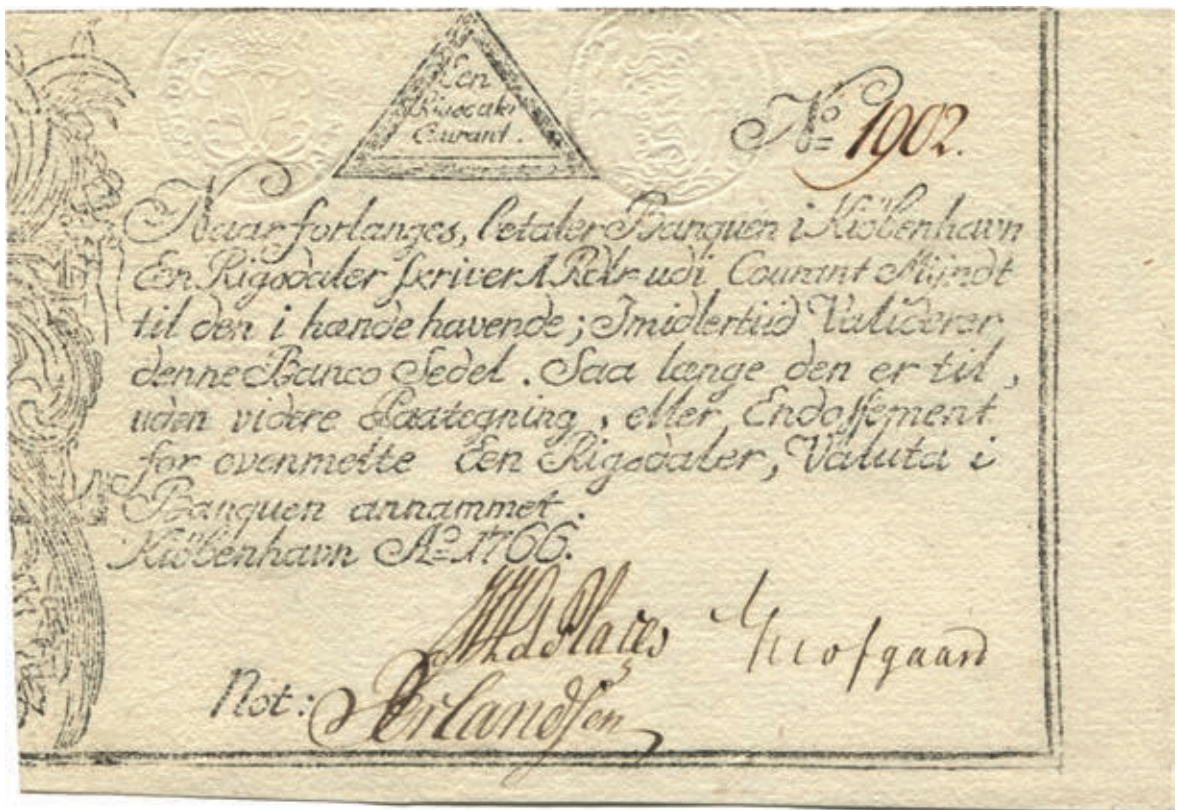 Een
Rigsdaler
Courant.
No 1902.
Naar forlanges, betaler Banquen i Kiøbenhavn
En Rigsdaler skriver 1 Rdlr udi Courant Myndt
til den i hænde havende; Imidlertiid Validerer
denne Banco Sedel. Saa længe den er til,
uden videre Paategning, eller, Endossement
for ovenmelte Een Rigsdaler, Valuta i
Banquen annammet.
Kiøbenhavn Ao 1766.
Not: Erlandsen